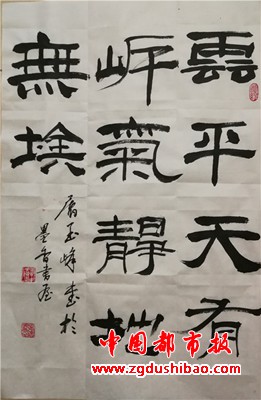 雲平天有
岸氣靜地
無埃
玉峰書於
墨香書屋
中國都市报
www.zgdushibao.com